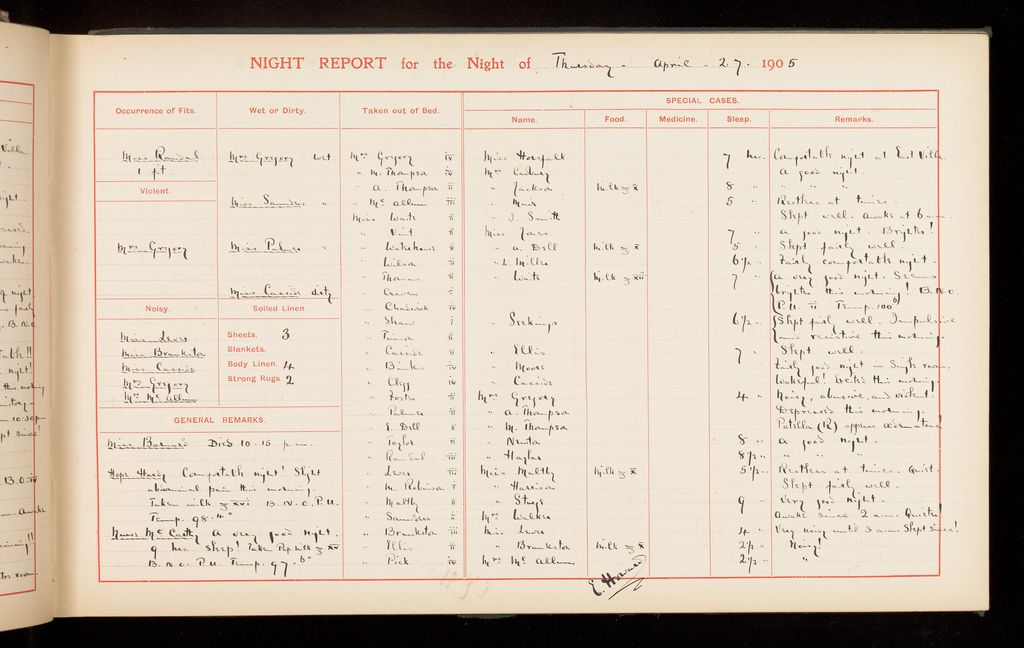 NIGHT REPORT for the Night of Thursday. April. 27. 1905
Occurrence of Fits.
Miss Randal
1 fit.
Violent.
Mrs Gregory
Noisy.
Miss Lewis
Miss Brankston
Miss Cassidi
Mrs Gregory
Mrs Mc Allum
Wet or Dirty.
Mrs Gregory wet
Miss Saunders "
Miss Palmer "
Miss Cassidi dirty
Soiled Linen.
Sheets. 3
Blankets.
Body Linen. 4
Strong Rugs. 2
GENERAL REMARKS.
Miss Barnard Died 10.15 p.m.
Hope Hardy Comfortable night! Slight
abdominal pain this morning.
Taken milk ℥ xvi B.N.O. P.U.
Temp. 98.4°
Nurse Mc Carthy A very good night.
9 hrs. sleep! Taken Pep milk ℥ xv
B.N.O. P.U. Temp. 97.6°
Taken out of Bed.
Mrs Gregory iv
" M. Thompson iv
" A. Thompson ii
" Mc Allum iii
Miss Waite ii
" Vint ii
" Waterhouse ii
" Wilson ii
" Thomas ii
" Craven i
" Chadwick iv
" Shaw i
" Cassidi ii
" Binks iv
" Clegg iv
" Foster ii
" Palmer ii
" E. Dell ii
" Taylor ii
" Randal iii
" Lewis iii
" M. Robinson i
" Malthy ii
" Saunders ii
" Brankston iii
" Ellis ii
" Pick iv
SPECIAL CASES.
Name. Food. Medicine. Sleep. Remarks.
Miss Horsfall 7 hrs. Comfortable night at East Villa
Mrs Cadbury A good night.
" Jackson milk ℥ x 8 " " " "
" Muir 5 " Restless at times.
" J. Smith Slept well. Awake at 6 a.m.
Miss Jones 7 " A good night. Brighter!
" A. Dell milk ℥ x 5 " Slept fairly well.
" L. Miller 6½ " Fairly comfortable night.
" Waite Milk ℥ xii 7 " A very good night. Seems
brighter this morning! B.N.O.
P.U. ii Temp. 100.6
" Seekings 6½ " Slept fairly well. Impulsive
and resistive this morning.
" Ellis 7 " Slept well.
" Moore Fairly good night in Single room.
" Cassidi Wakeful! this morning.
Mrs Gregory 4 " Noisy, abusive, and violent!
" A. Thompson Depressed this morning.
" M. Thompson Patella (R) appears
" Newton 8 " A good night.
" Hayter 8½ " " " "
Miss Malthy Milk ℥ x 5½ " Restless at times. Quiet.
" Harrison Slept fairly well.
" Stays 9 " Very good night.
Mrs Walker Awake since 2 a.m. Quieter!
Miss Lewis 4 " Very noisy until 3 a.m. Slept since!
" Brankston Milk ℥ x 2½ " Noisy!
Mrs Mc Allum 2½ " "
E. Howard